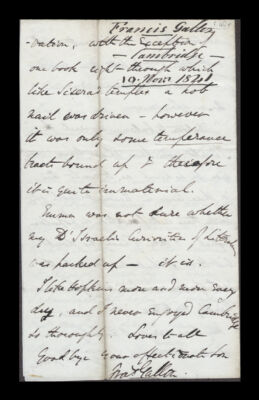 Francis Galton
Cambridge
19 Novr 1841
-vation, with the exception
one book right through which
like Sisera's temples a hot
nail was driven — however
it was only some temperance
tracts bound up & therefore
it is quite immaterial.
Emma was not sure whether
my D'Israeli's Curiosities of
was packed up — it is.
I like Hopkins more and more every
day, and I never enjoyed Cambridge
so thoroughly. Love to all
Good bye your affectionate Son
Fras Galton.